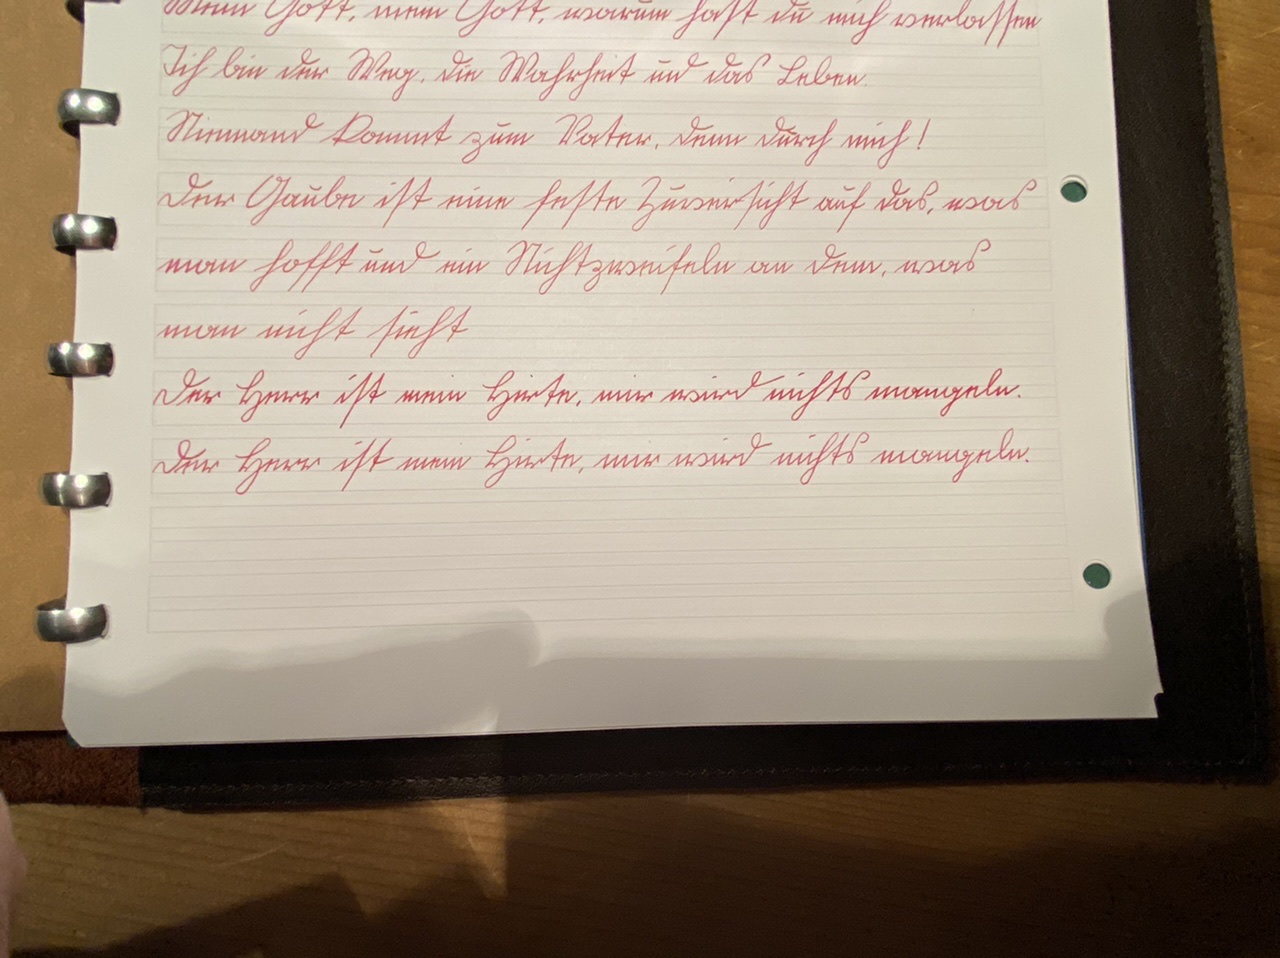 Mein Gott, mein Gott, warum hast du mich verlassen
Ich bin der Weg, die Wahrheit und das Leben.
Niemand kommt zum Vater, denn durch mich!
Der Gaube ist eine feste Zuversicht auf das, was
man hofft und ein Nichtzweifeln an dem, was
man nicht sieht
Der Herr ist mein Hirte, mir wird nichts mangeln.
Der Herr ist mein Hirte, mir wird nichts mangeln.